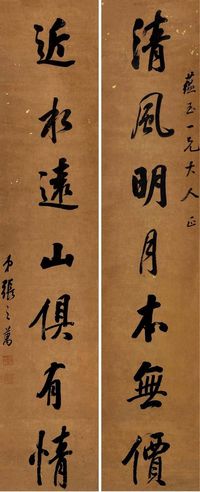 蘊玉一兄大人正
清風明月本無價
近水遠山俱有情
弟張之萬